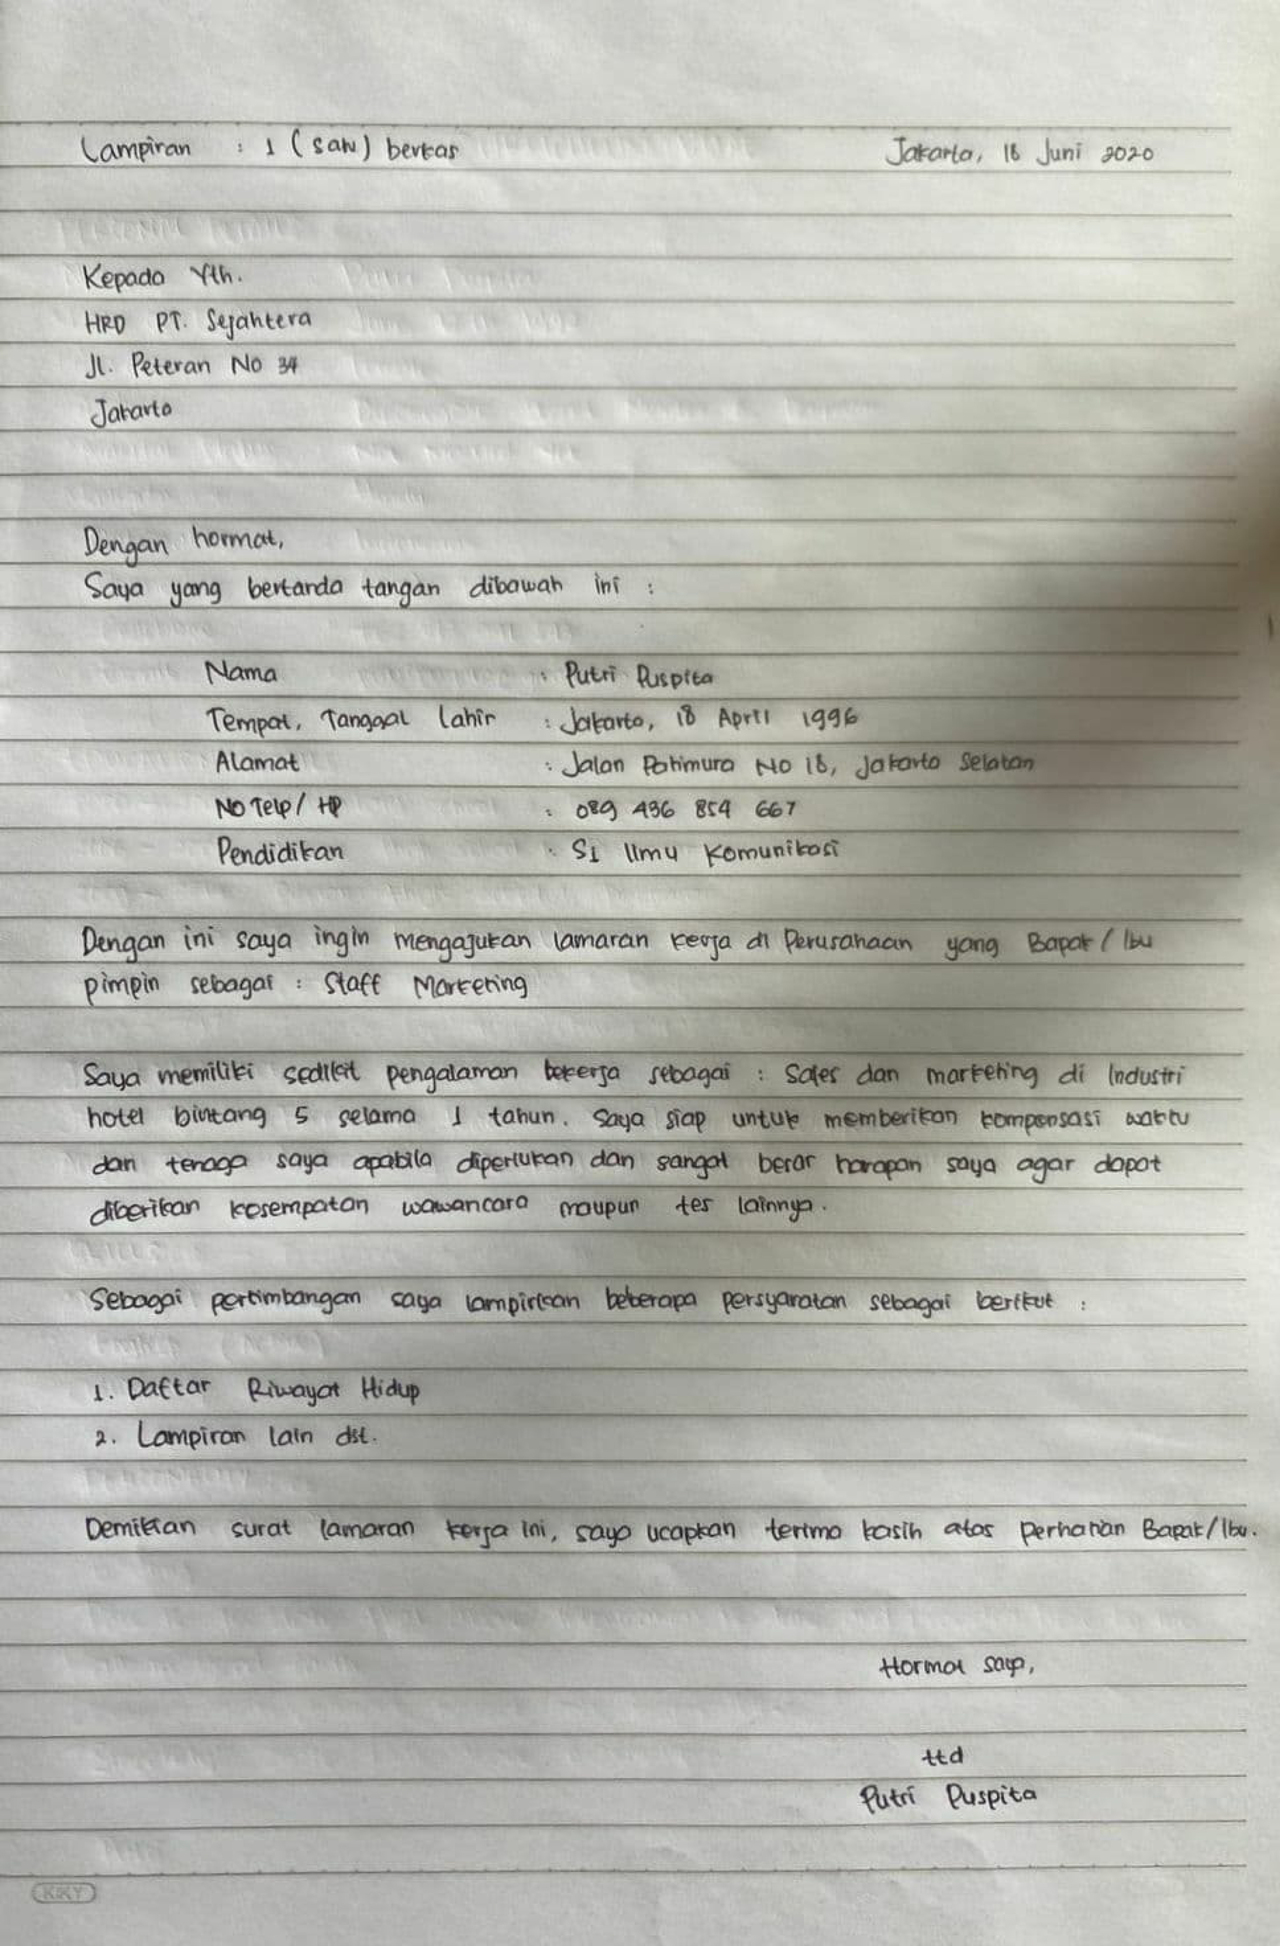 Lampiran : 1 (satu) berkas Jakarta, 18 Juni 2020
Kepada Yth.
HRD PT. Sejahtera
Jl. Peteran No 34
Jakarta
Dengan hormat,
Saya yang bertanda tangan dibawah ini :
Nama : Putri Puspita
Tempat, Tanggal lahir : Jakarta, 18 April 1996
Alamat : Jalan Patimura No 18, Jakarta Selatan
No Telp / HP : 089 436 854 667
Pendidikan : S1 Ilmu Komunikasi
Dengan ini saya ingin mengajukan lamaran kerja di Perusahaan yang Bapak / Ibu
pimpin sebagai : Staff Marketing
Saya memiliki sedikit pengalaman bekerja sebagai : Sales dan marketing di Industri
hotel bintang 5 selama 1 tahun. Saya siap untuk memberikan kompensasi waktu
dan tenaga saya apabila diperlukan dan sangat besar harapan saya agar dapat
diberikan kesempatan wawancara maupun tes lainnya.
Sebagai pertimbangan saya lampirkan beberapa persyaratan sebagai berikut :
1. Daftar Riwayat Hidup
2. Lampiran lain dst.
Demikian surat lamaran kerja ini, saya ucapkan terima kasih atas perhatian Bapak/Ibu.
Hormat saya,
ttd
Putri Puspita
KIKY